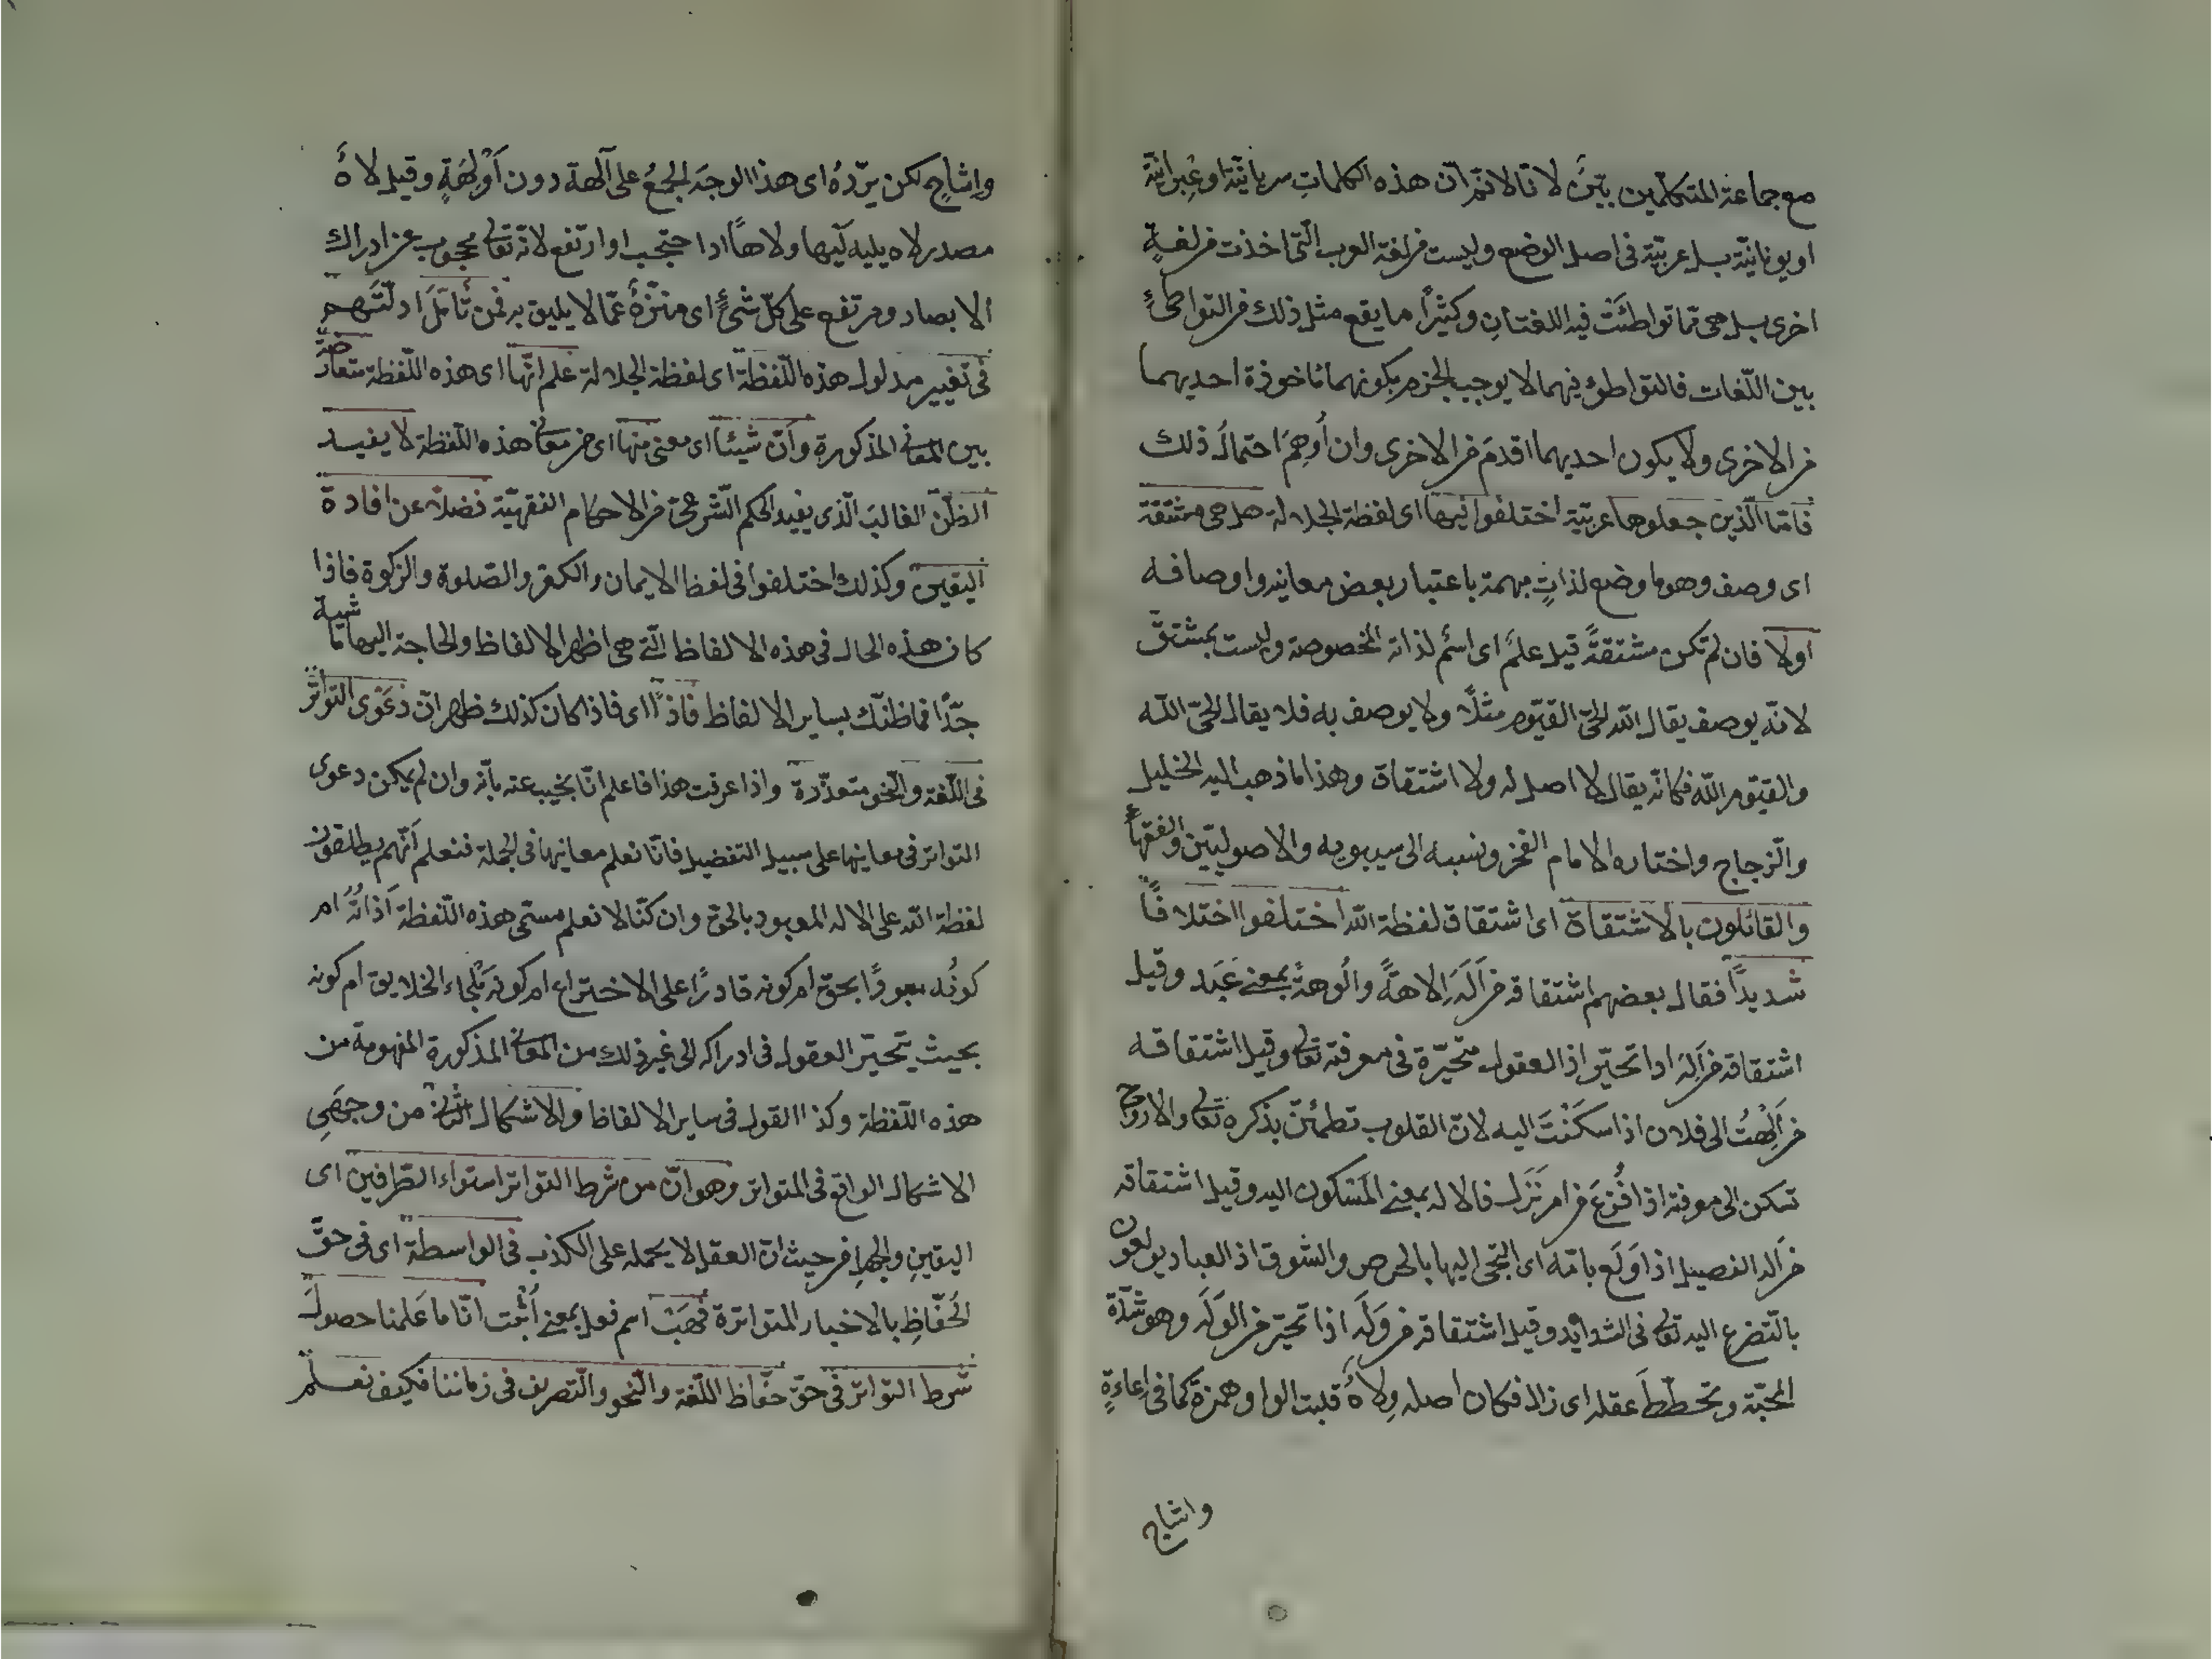 مع جماعة المتكلمين بيّن لانا لا نم ان هذه الكلمات سريانيّة او عِبرانيّة
او يونانيّة بل عربيّة فى اصل الوضع وليست من لغة العرب الّتى اخذت من لغةٍ
اخرى بل هى ممّا تواطئَتْ فيه اللغتانِ وكثيرًا ما يقع مثل ذلك من التواطئِ
بين اللّغات فالتواطؤ فيهما لا يوجب الجزم بكونهما ماخوذة احديهما
من الاخرى ولا يكون احديهما اقدمَ من الاخرى وان اُوهِمَ احتمالُ ذلك
فامّا الّذين جعلوها عربيّة اختلفوا فيها اى لفظة الجلالة هل هى مشتقة
اى وصف وهو ما وضع لذاتٍ مبهمة باعتبار بعض معانيه واوصافه
اولا فان لم تكن مشتقةً قيل علمٌ اى اسْم لذاته المخصوصة وليست بمشتقّ
لانّه يوصف يقال اللّه الحىّ القيّوم مثلًا ولا يوصف به فلا يقال الحىّ اللّه
والقيّوم اللّه فكانّه يقال لا اصل له ولا اشتقاق وهذا ما ذهب اليه الخليل
والزّجاج واختاره الامام الفخر ونسبه الى سيبويه والاصوليّين والفقهاء
والقائلون بالاشتقاق اى اشتقاق لفظة اللّه اختلفوا اختلافًا
شديدًا فقال بعضهم اشتقاقه من اَلَهَ اِلاهةً واُلُوهةً بمعنى عَبَد وقيل
اشتقاقه من اَلِهَ اذا تحيّر اذ العقول متحيّرة فى معرفته تعالى وقيل اشتقاقه
من اَلِهْتُ الى فلان اذا سكَنْتَ اليه لانّ القلوب تطمئنّ بذكره تعالى والارواح
تسكن الى معرفته اذا فُزِعَ من امر نَزَل فالاله بمعنى المَسْكون اليه وقيل اشتقاقه
من اَلِه الفصيل اذا اَوْلَع بامّه اى التجى اليها بالحرص والشوق اذ العباد يولعون
بالتّضرع اليه تعالى فى الشدايد وقيل اشتقاقه من وَلَه اذا تحيّر من الوَلَه وهو شدّة
المحبّة وتخطّطَ عقله اى زال فكان اصله وِلاهٌ قلبت الواو همزة كما فى اِعاءٍ
واشاح
واِشاحٍ لكن يردّهُ اى هذا الوجهَ الجمعُ على آلهة دون اَوْلِهَةٍ وقيل لاهٌ
مصدر لاه يليه لَيْها ولاهًا اذا احتجب او ارتفع لانّه تعالى محجوب عن ادراك
الابصار ومرتفع على كلّ شئٍ اى منزّهٌ عمّا لا يليق به فمن تأمّلَ ادلّتَهم
فى تعيير مدلول هذه اللّفظة اى لفظة الجلالة علم انّها اى هذه اللّفظة متعارضة
بين المعانى المذكورة وانّ شيئًا اى معنى منها اى من معانى هذه اللّفظة لا يفيد
الظنّ الغالبَ الّذى يفيد الحكم الشّرعىّ من الاحكام الفقهيّة فضلًا عن افادة
اليقين وكذلك اختلفوا فى لفظ الايمان والكفر والصّلوة والزكوة فاذا
كان هذه الحال فى هذه الالفاظ الّتى هى اظهر الالفاظ والحاجة اليها ماسّة
جدًّا فما ظنّك بساير الالفاظ فاذًا اى فاذا كان كذلك ظهر انّ دَعْوَى التواتر
فى اللّغة والنّحو متعذّرة واذا عرفت هذا فاعلم انّا نجيب عنه بانّه وان لم يكن دعوى
التواتر فى معاينها على سبيل التفصيل فانّا نعلم معانيها فى الجملة فنعلم اَنّهم يطلقون
لفظة اللّه على الاله المعبود بالحق وان كنّا لا نعلم مسمّى هذه اللّفظة اَذاتُهُ ام
كونُه معبودًا بحقّ ام كونه قادرًا على الاختراع ام كونه مَلْجاء الخلايق ام كونه
بحيث يتحيّر العقول فى ادراكه الى غير ذلك من المعانى المذكورة المفهومة من
هذه اللّفظة وكذا القول فى ساير الالفاظ والاشكال الثّانى من وجهَىِ
الاشكال الواقع فى المتواتر وهو انّ من شرط التواتر استواء الطّرفين اى
اليقينِ والجهلِ من حيث انّ العقل لا يحمله على الكذب فى الواسطة اى فى حقّ
الحُفّاظِ بالاخبار المتواترة فَهَبْ اسم فعل بمعنى اَثْبِت انّا ما عَلمنا حصولَ
شرط التواتر فى حقّ حفّاظ اللّغة والنّحو والتّصريف فى زماننا فكيف نعلم